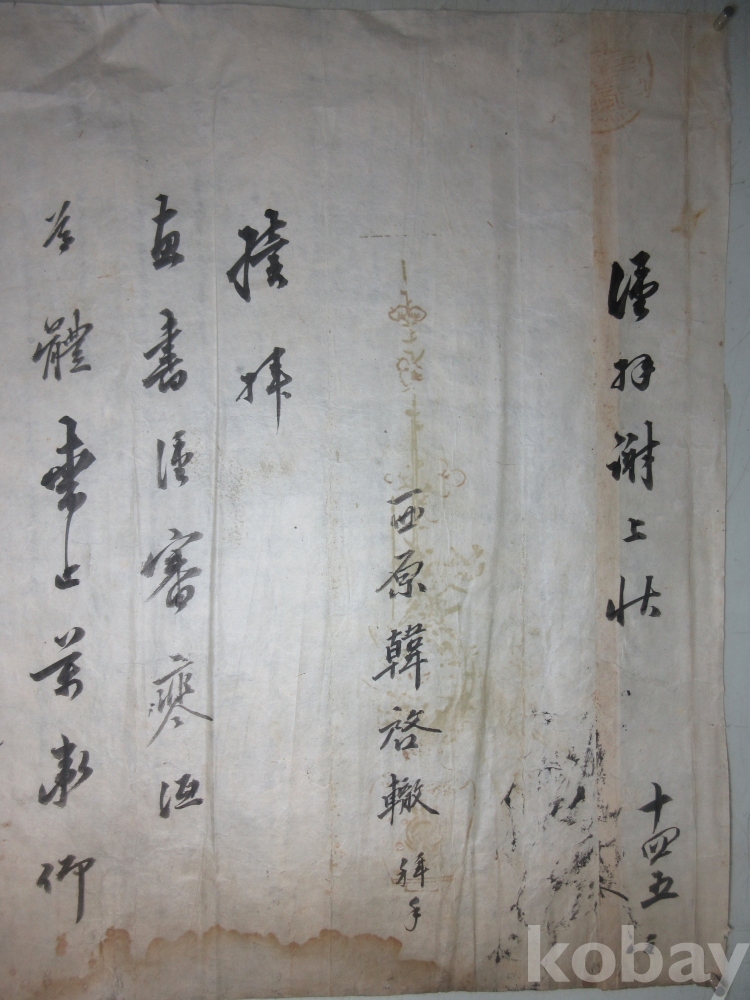 謹拜謝上狀
十四五
西原韓啓轍 拜手
拜
惠書謹審寒沍
體 止萬 仰
kobay